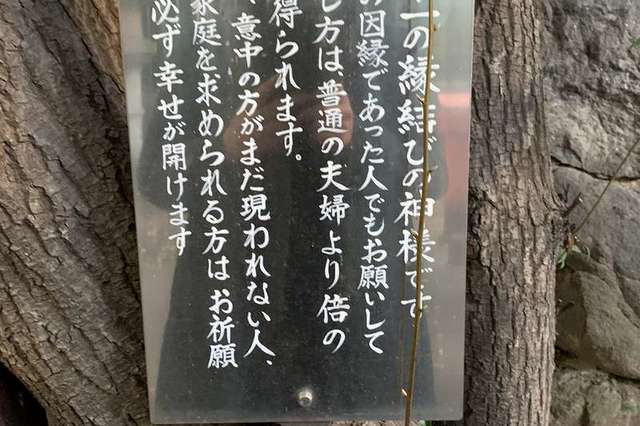 一の縁結びの神様です
の因縁であった人でもお願いして
し方は、普通の夫婦より倍の
得られます。
、意中の方がまだ現われない人、
家庭を求められる方は お祈願
必ず幸せが開けます